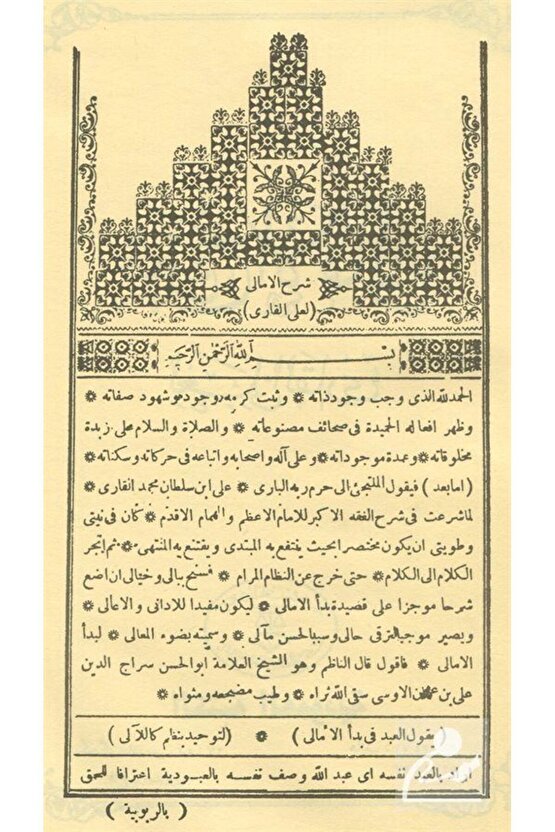 شرح الامالى
(لعلى القارى)
بسم الله الرحمن الرحيم
الحمدلله الذى وجب وجود ذاته ❋ وثبت كرمه وجوده وشهود صفاته ❋
وظهر افعاله الحميدة فى صحائف مصنوعاته ❋ والصلاة والسلام على زبدة
مخلوقاته ❋ وعمدة موجوداته ❋ وعلى آله واصحابه واتباعه فى حركاته وسكناته ❋
(امابعد) فيقول الملتجئ الى حرم ربه البارى ❋ على ابن سلطان محمد القارى ❋
لما شرعت فى شرح الفقه الاكبر للامام الاعظم والهمام الاقدم ❋ كان فى نيتى
وطويتى ان يكون مختصرا بحيث ينتفع به المبتدى ويقتنع به المنتهى ❋ ثم انجر
الكلام الى الكلام ❋ حتى خرج عن النظام المرام ❋ فسنح ببالى وخيالى ان اضع
شرحا موجزا على قصيدة بدأ الامالى ❋ ليكون مفيدا للادانى والاعالى ❋
ويصير موجبا لترقى حالى وسببا لحسن مآلى ❋ وسميته بضوء المعالى ❋ لبدأ
الامالى ❋ فاقول قال الناظم وهو الشيخ العلامة ابوالحسن سراج الدين
على بن عثمان الاوسى سقى الله ثراه ❋ وطيب مضجعه ومثواه ❋
(يقول العبد فى بدأ الامالى) ❋ (لتوحيد بنظم كاللآلى)
اراد بالعبد نفسه اى عبد الله وصف نفسه بالعبودية اعترافا للحق
(بالربوبية)